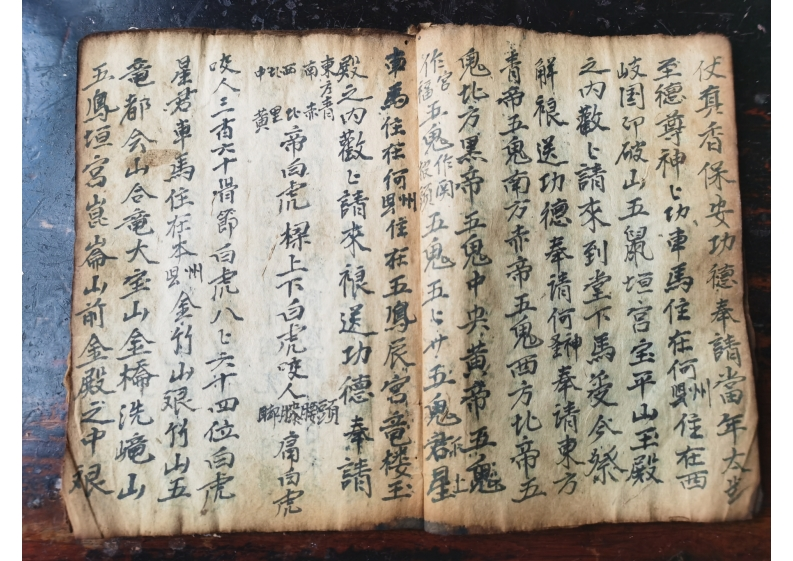 仗真香保安功德奉請當年太岁
至德尊神〻功車馬住在何州縣住在西
岐国卬破山五鼠垣宫宝平山王殿
之内歡〻請來到堂下馬受領祭
解禳送功德奉請何神聖奉請東方
青帝五鬼南方赤帝五鬼西方北帝五
鬼北方黑帝五鬼中央黄帝五鬼
作宫作福五鬼作闹假頭五鬼五〻廿五鬼君星
車馬住在何州縣住在五鳳辰宮竜楼玉
殿之内歡〻請來禳送功德奉請
東方青南赤西北北黑中黄帝白虎樑上下白虎咬人頭腰膝脚痛白虎
咬人三百六十骨節白虎八〻六十四位白虎
星君車馬住在本州县金竹山艰竹山五
竜都会山合竜大宝山金橋洗嶢山
五鳳垣宮崑崙山前金殿之中艰